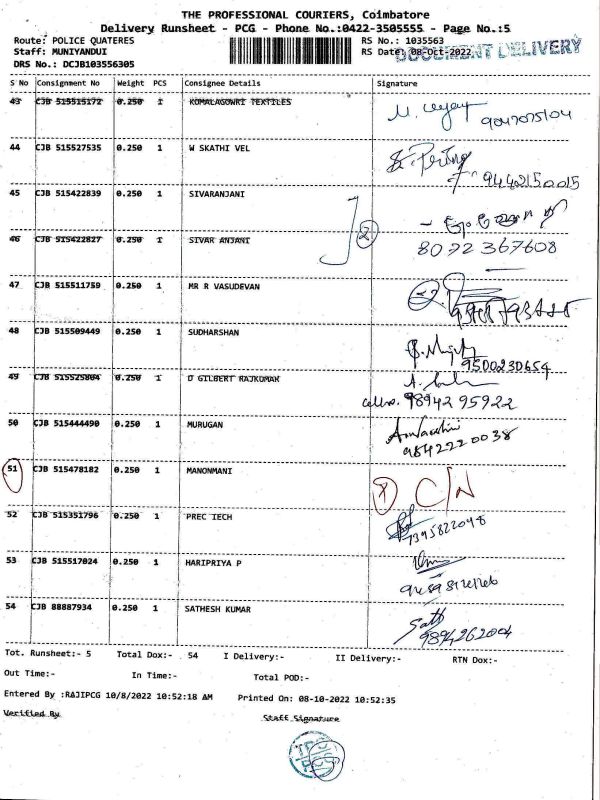 THE PROFESSIONAL COURIERS, Coimbatore
Delivery Runsheet - PCG - Phone No.:0422-3505555 - Page No.:5
Route: POLICE QUATERES RS No.: 1035563
Staff: MUNIYANDUI RS Date: 08-Oct-2022 DOCUMENT DELIVERY
DRS No.: DCJB103556305
S No Consignment No Weight PCS Consignee Details Signature
43 CJB 515515172 0.250 1 KOMALAGOWRI TEXTILES
44 CJB 515527535 0.250 1 W SKATHI VEL
9442150015
45 CJB 515422839 0.250 1 SIVARANJANI
46 CJB 515422827 0.250 1 SIVAR ANJANI 2 8072367608
47 CJB 515511759 0.250 1 MR R VASUDEVAN
48 CJB 515509449 0.250 1 SUDHARSHAN
9500230654
49 CJB 515525804 0.250 1 D GILBERT RAJKUMAR
98942 95922
50 CJB 515444490 0.250 1 MURUGAN
9842220038
51 CJB 515478182 0.250 1 MANONMANI C/N
52 CJB 515351796 0.250 1 PREC IECH
7395822048
53 CJB 515517024 0.250 1 HARIPRIYA P
54 CJB 88887934 0.250 1 SATHESH KUMAR
9894262004
Tot. Runsheet:- 5 Total Dox:- 54 I Delivery:- II Delivery:- RTN Dox:-
Out Time:- In Time:- Total POD:-
Entered By :RAJIPCG 10/8/2022 10:52:18 AM Printed On: 08-10-2022 10:52:35
Verified By Staff Signature